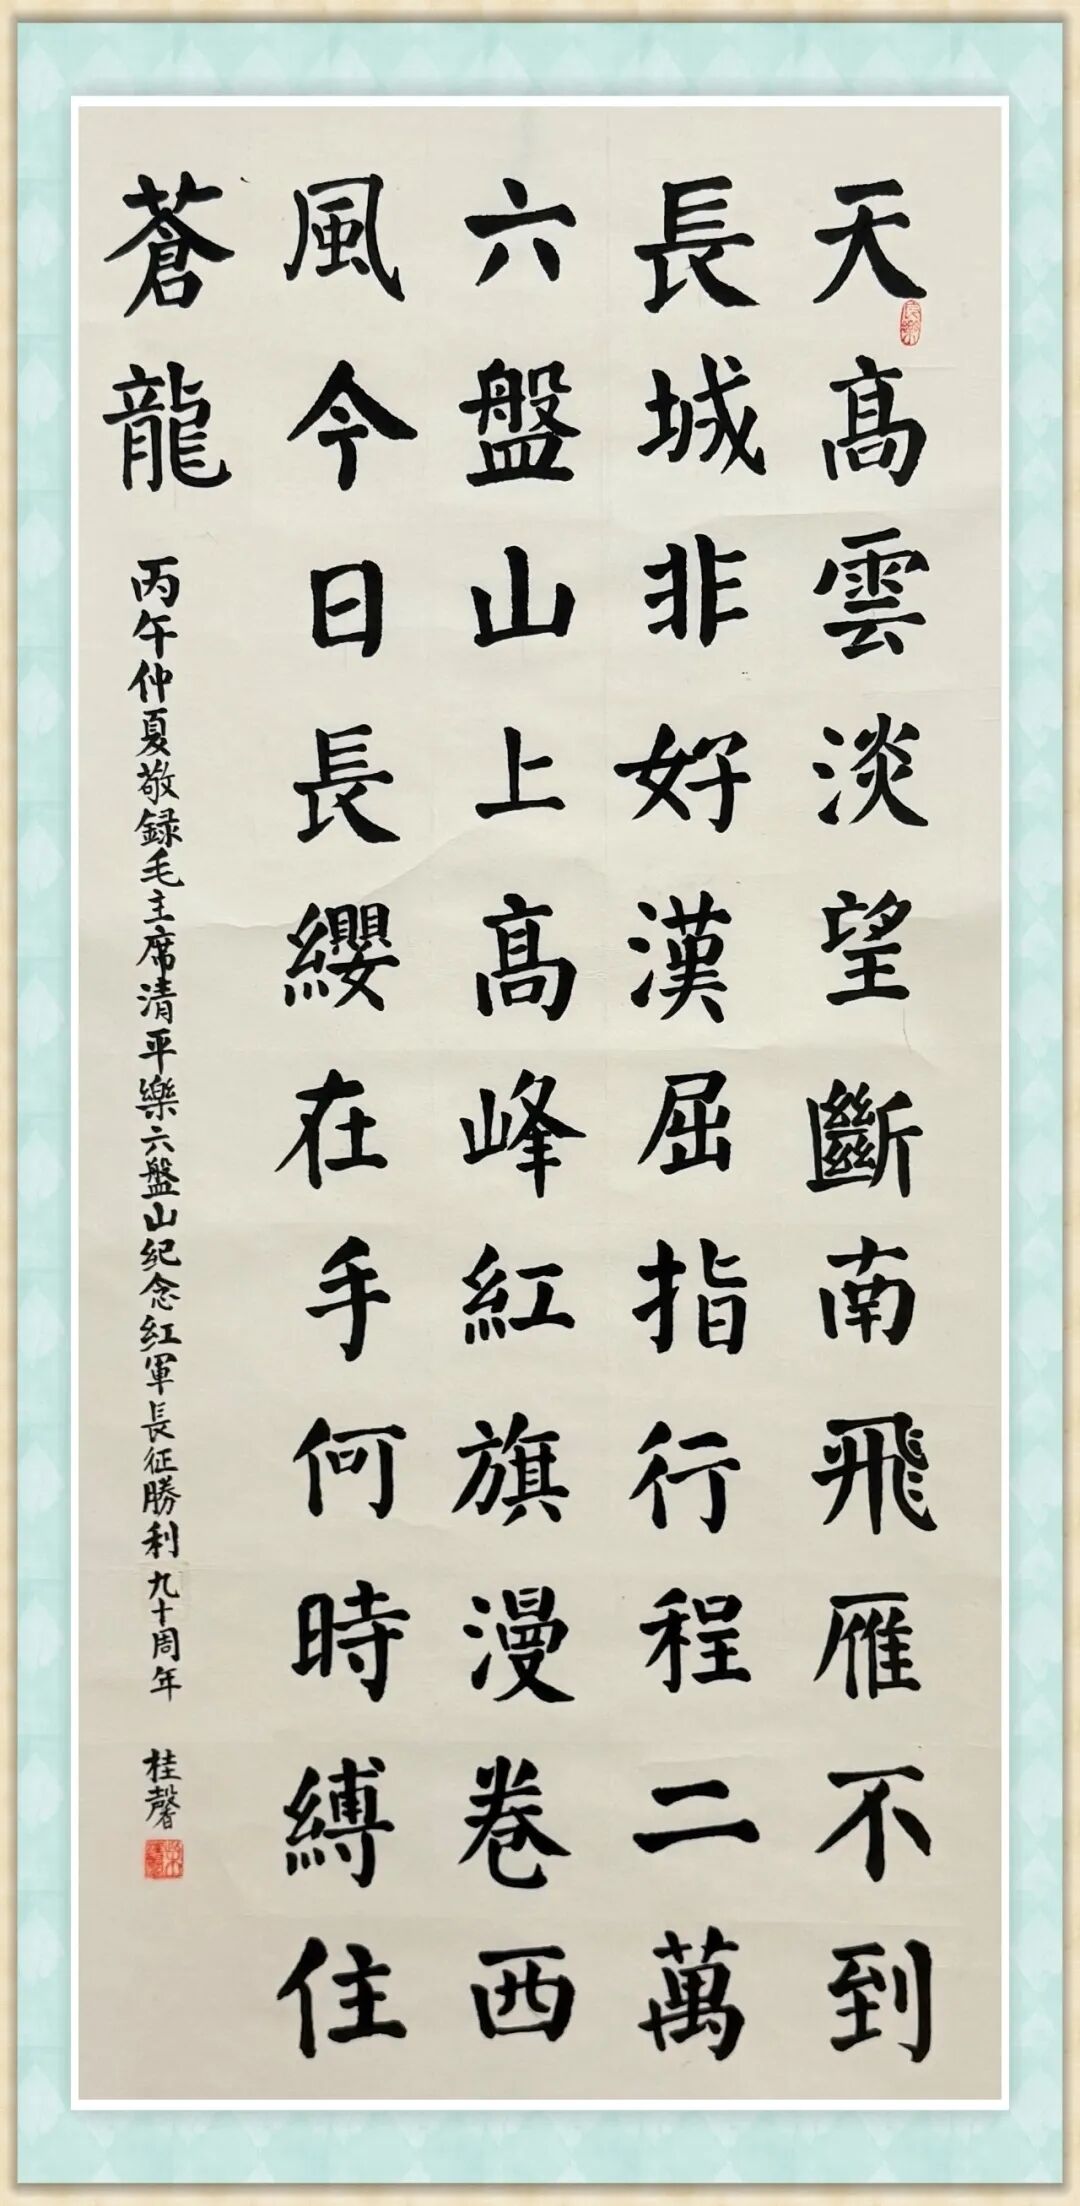 天高雲淡望斷南飛雁不到
長城非好漢屈指行程二萬
六盤山上高峰紅旗漫卷西
風今日長纓在手何時縛住
蒼龍
丙午仲夏敬録毛主席清平樂六盤山紀念紅軍長征勝利九十周年 桂馨